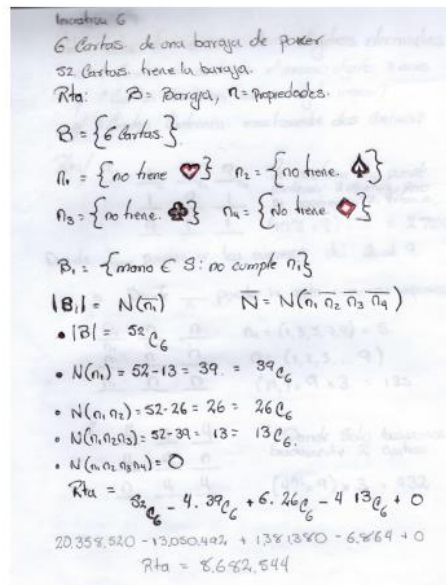 6 Cartas de una baraja de poker
52 Cartas tiene la baraja.
Rta: B = Baraja, n = Propiedades.
B = {6 Cartas.}
n₁ = {no tiene ♥} n₂ = {no tiene. ♠}
n₃ = {no tiene. ♣} n₄ = {No tiene ♦}
B₁ = {mano ∈ S: no cumple n₁}
|B₁| = N(n̅₁) N̅ = N(n̅₁ n̅₂ n̅₃ n̅₄)
• |B| = 52C₆
• N(n₁) = 52-13 = 39 = 39C₆
• N(n₁n₂) = 52-26 = 26 = 26C₆
• N(n₁n₂n₃) = 52-39 = 13 = 13C₆.
• N(n₁n₂n₃n₄) = 0
Rta =
52C₆ - 4. 39C₆ + 6. 26C₆ - 4 13C₆ + 0
20.358.520 - 13,050,492 + 1381380 - 6.864 + 0
Rta = 8,682,544